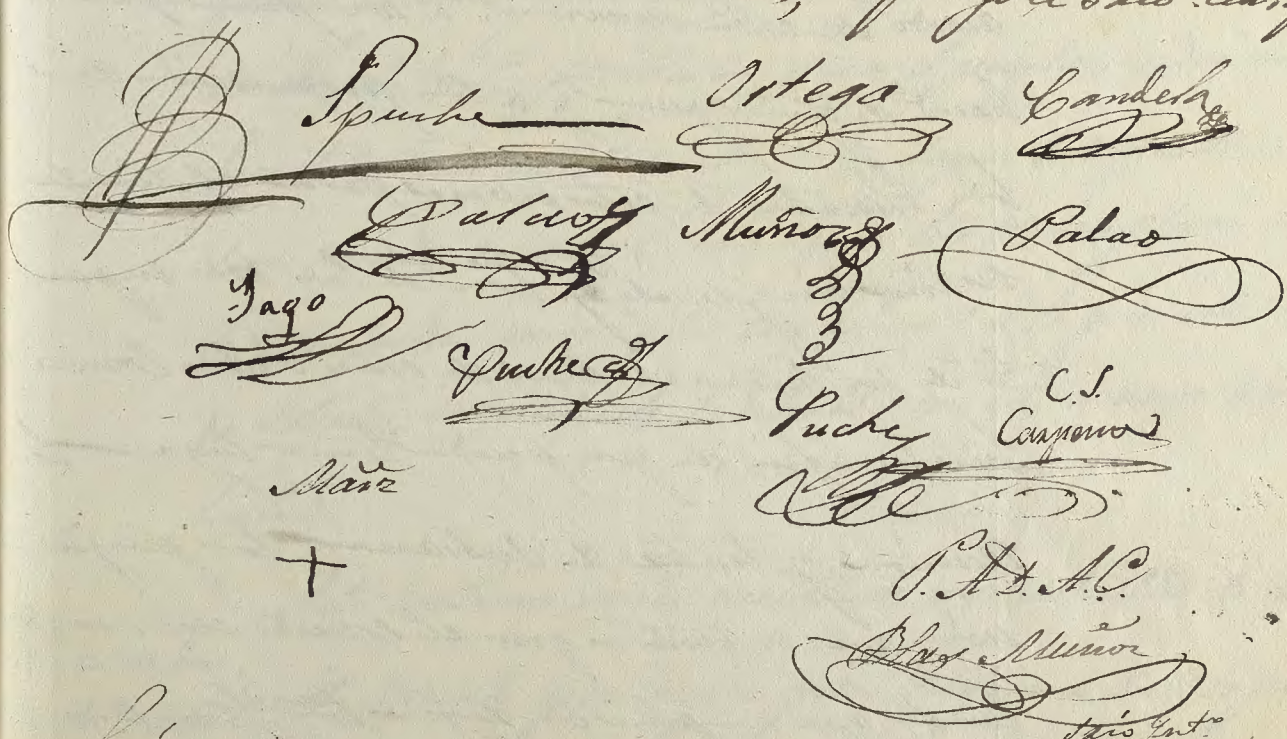 Spuche Ortega Candela
Palao Muñoz Palao
Yago
Puche
Puche C. S.
Carpena
Mäñz
+
P. A. D. A. C.
Blas Muñoz
Srio Int.º